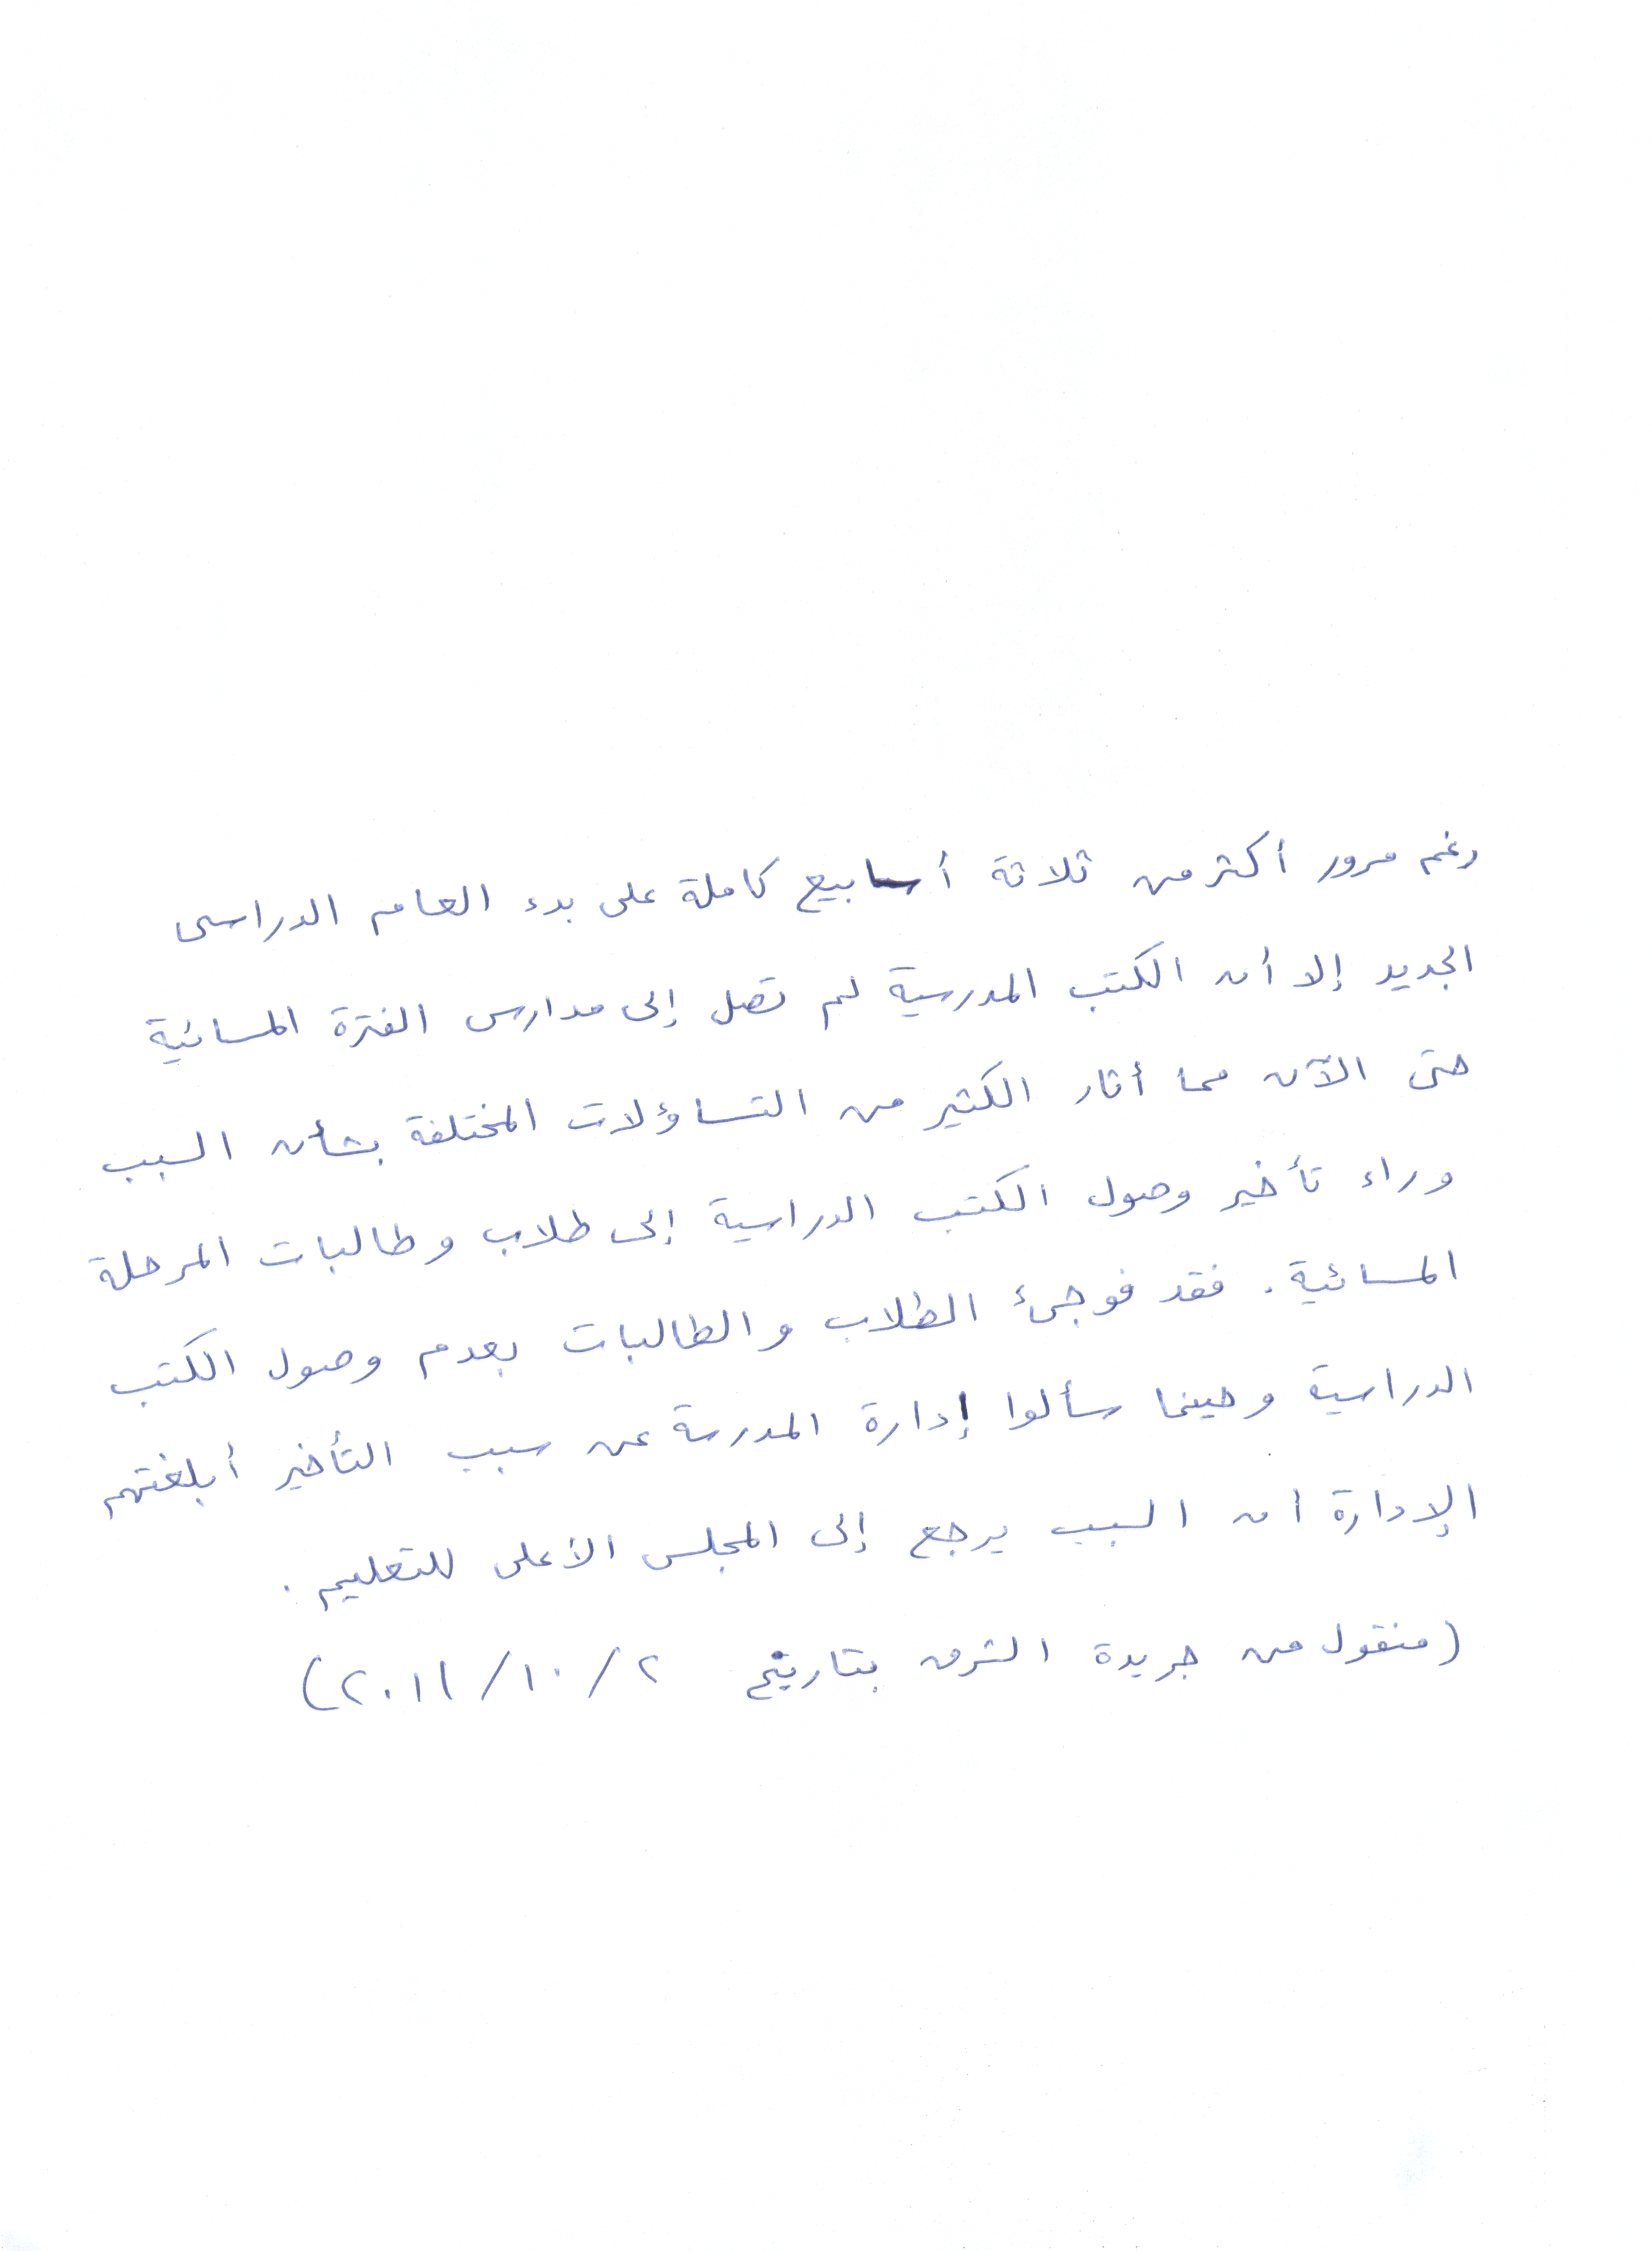 رغم مرور أكثر من ثلاثة أسابيع كاملة على بدء العام الدراسى
الجديد إلا أن الكتب المدرسية لم تصل إلى مدارس الفترة المسائية
حتى الآن مما أثار الكثير من التساؤلات المختلفة بشأن السبب
وراء تأخير وصول الكتب الدراسية إلى طلاب وطالبات المرحلة
المسائية. فقد فوجئ الطلاب والطالبات بعدم وصول الكتب
الدراسية وحينما سألوا إدارة المدرسة عن سبب التأخير أبلغتهم
الإدارة أن السبب يرجع إلى المجلس الأعلى للتعليم.
(منقول من جريدة الشرق بتاريخ ٢/١٠/٢٠١١)